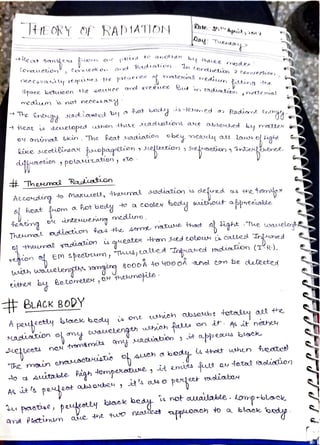 THEORY OF RADIATION
Date: April,
Day: Tuesday
→ Heat transfers from one point to another by three modes
Conduction, Convection and Radiation. In conduction & convection,
necessarily requires the presence of material medium filling the
space between the source and receiver But in radiation, material
medium is not necessary
→ The Energy radiated by a hot body is termed as Radiant Energy
→ Heat is developed when these radiations are absorbed by matter
or animal skin. The heat radiation obey nearly all laws of light
like rectilinear propagation, reflection, refraction, Interference
diffraction, polarization, etc.
# Thermal Radiation
According to Maxwell, thermal radiation is defined as the transfer
of heat from a hot body to a cooler body without appreciable
heating of intervening medium.
Thermal radiation has the same nature that of light. The wavelength
of thermal radiation is greater than red colour is called Infrared
region of EM spectrum, Thus, called Infrared radiation (IR).
with wavelengths ranging 8000Å to 4000Å and can be detected
either by Bolometer, or thermopile.
# BLACK BODY
A perfectly black body is one which absorbs totally all the
radiation of any wavelength which falls on it. As it neither
reflects nor transmits any radiation, it appears black
The main characteristic of such a body is that when heated
to a suitable high temperature, it emits full or total radiation
As it's perfect absorber, it's also perfect radiator
In practice, perfectly black body is not available. Lamp-black
and Platinum are the two nearest approach to a black body.